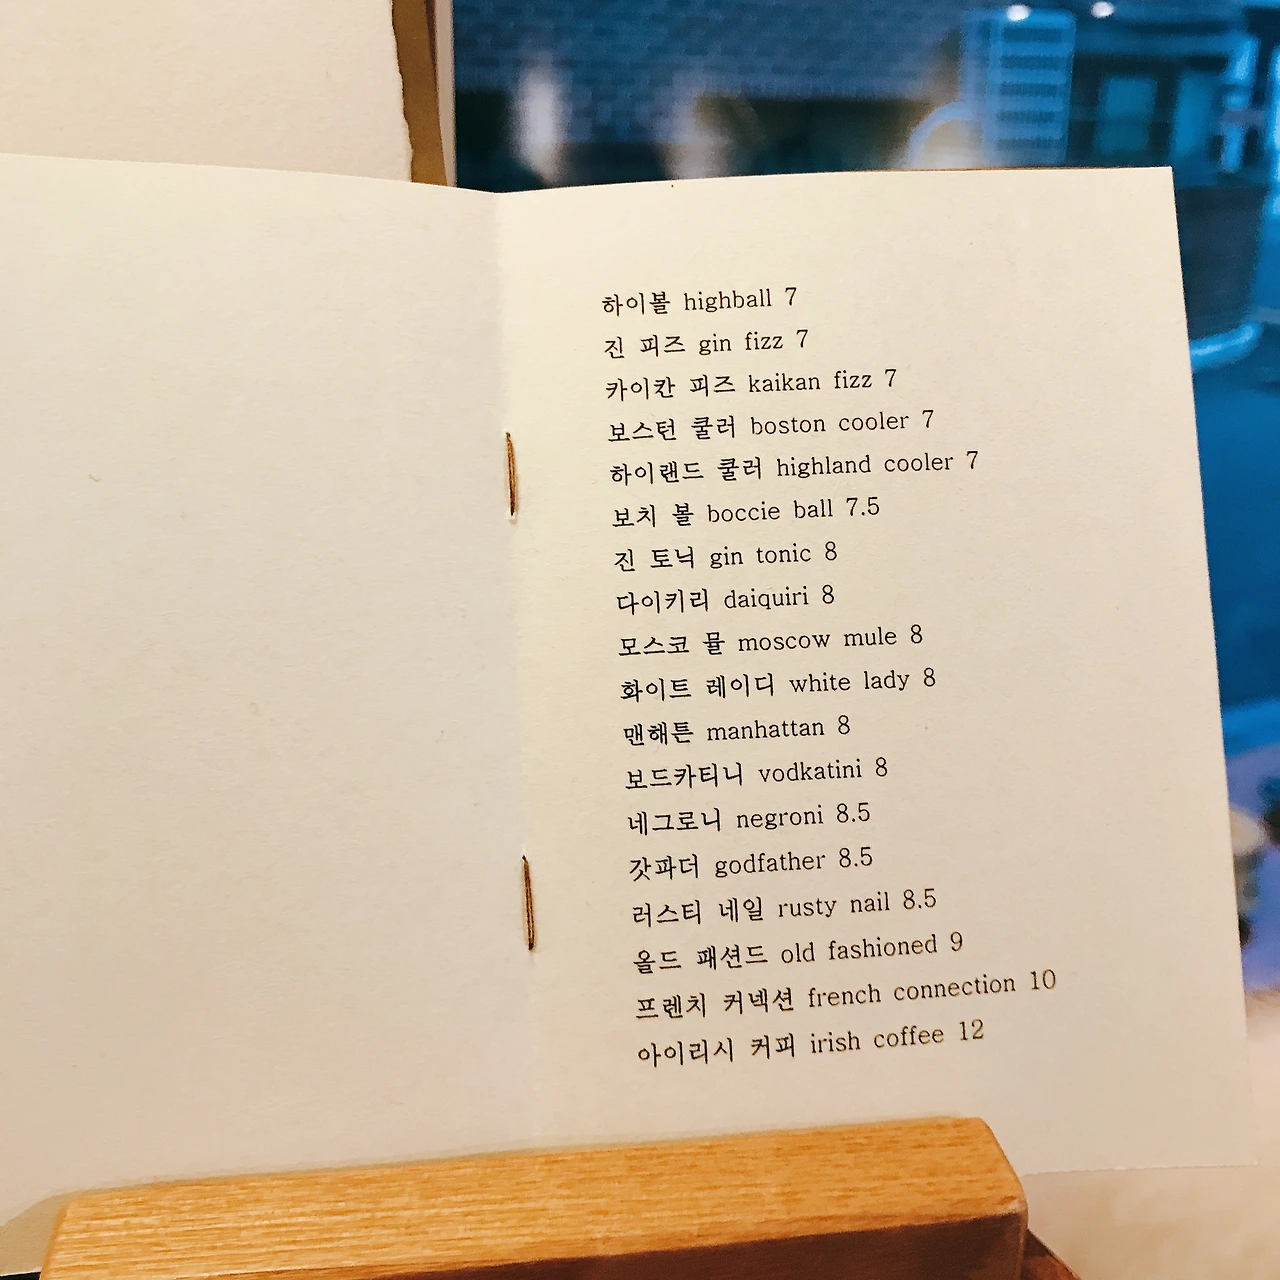 하이볼 highball 7
진 피즈 gin fizz 7
카이칸 피즈 kaikan fizz 7
보스턴 쿨러 boston cooler 7
하이랜드 쿨러 highland cooler 7
보치 볼 boccie ball 7.5
진 토닉 gin tonic 8
다이키리 daiquiri 8
모스코 뮬 moscow mule 8
화이트 레이디 white lady 8
맨해튼 manhattan 8
보드카티니 vodkatini 8
네그로니 negroni 8.5
갓파더 godfather 8.5
러스티 네일 rusty nail 8.5
올드 패션드 old fashioned 9
프렌치 커넥션 french connection 10
아이리시 커피 irish coffee 12